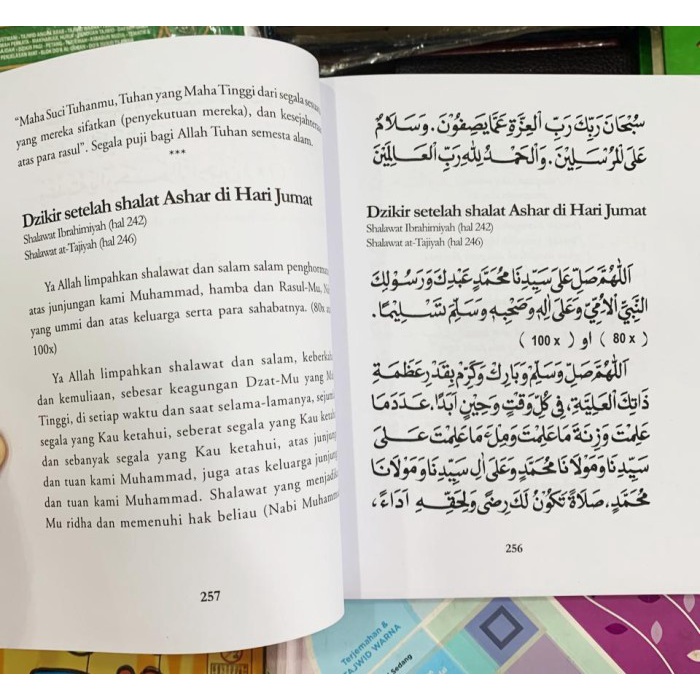 سُبْحَانَ رَبِّكَ رَبِّ الْعِزَّةِ عَمَّا يَصِفُوْنَ. وَسَلَامٌ
عَلَى الْمُرْسَلِيْنَ. وَالْحَمْدُ لِلّٰهِ رَبِّ الْعَالَمِيْنَ
Dzikir setelah shalat Ashar di Hari Jumat
Shalawat Ibrahimiyah (hal 242)
Shalawat at-Tajiyah (hal 246)
اَللّٰهُمَّ صَلِّ عَلَى سَيِّدِنَا مُحَمَّدٍ عَبْدِكَ وَرَسُوْلِكَ
النَّبِيِّ الْاُمِّيِّ وَعَلَى اٰلِهِ وَصَحْبِهِ وَسَلِّمْ تَسْلِيْمًا.
( 80 x ) او ( 100 x )
اَللّٰهُمَّ صَلِّ وَسَلِّمْ وَبَارِكْ وَكَرِّمْ بِقَدْرِ عَظَمَةِ
ذَاتِكَ الْعَلِيَّةِ، فِي كُلِّ وَقْتٍ وَحِيْنٍ اَبَدًا، عَدَدَ مَا
عَلِمْتَ وَزِنَةَ مَا عَلِمْتَ وَمِلْءَ مَا عَلِمْتَ عَلَى
سَيِّدِنَا وَمَوْلَانَا مُحَمَّدٍ وَعَلَى اٰلِ سَيِّدِنَا وَمَوْلَانَا
مُحَمَّدٍ، صَلَاةً تَكُوْنُ لَكَ رِضًى وَلِحَقِّهِ اَدَاءً،
256
"Maha Suci Tuhanmu, Tuhan yang Maha Tinggi dari segala
yang mereka sifatkan (penyekutuan mereka), dan
atas para rasul". Segala puji bagi Allah Tuhan semesta alam.
***
Dzikir setelah shalat Ashar di Hari Jumat
Shalawat Ibrahimiyah (hal 242)
Shalawat at-Tajiyah (hal 246)
Ya Allah limpahkan shalawat dan salam salam
atas junjungan kami Muhammad, hamba dan Rasul-Mu,
yang ummi dan atas keluarga serta para sahabatnya. (80x
100x)
Ya Allah limpahkan shalawat dan salam,
dan kemuliaan, sebesar keagungan Dzat-Mu yang
Tinggi, di setiap waktu dan saat selama-lamanya,
segala yang Kau ketahui, seberat segala yang Kau
dan sebanyak segala yang Kau ketahui, atas
dan tuan kami Muhammad, juga atas keluarga
dan tuan kami Muhammad. Shalawat yang
Mu ridha dan memenuhi hak beliau (Nabi
257
Terjemahan &
TAJWID WARNA
Sedang